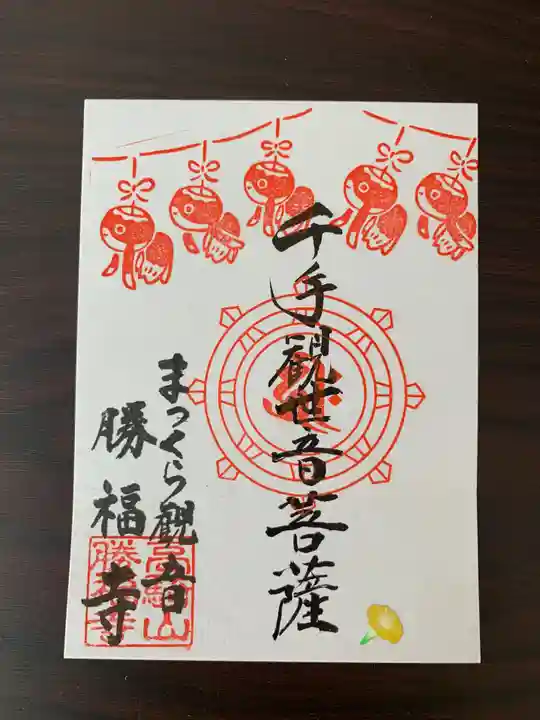 千手観世音菩薩
まっくら観音
勝福寺